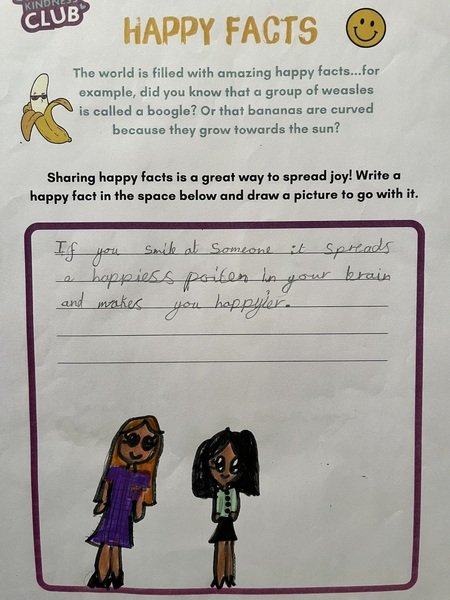 KINDNESS
CLUB
HAPPY FACTS
The world is filled with amazing happy facts...for
example, did you know that a group of weasles
is called a boogle? Or that bananas are curved
because they grow towards the sun?
Sharing happy facts is a great way to spread joy! Write a
happy fact in the space below and draw a picture to go with it.
If you smile at someone it spreads
a happiess poiten in your brain
and makes you happyier.